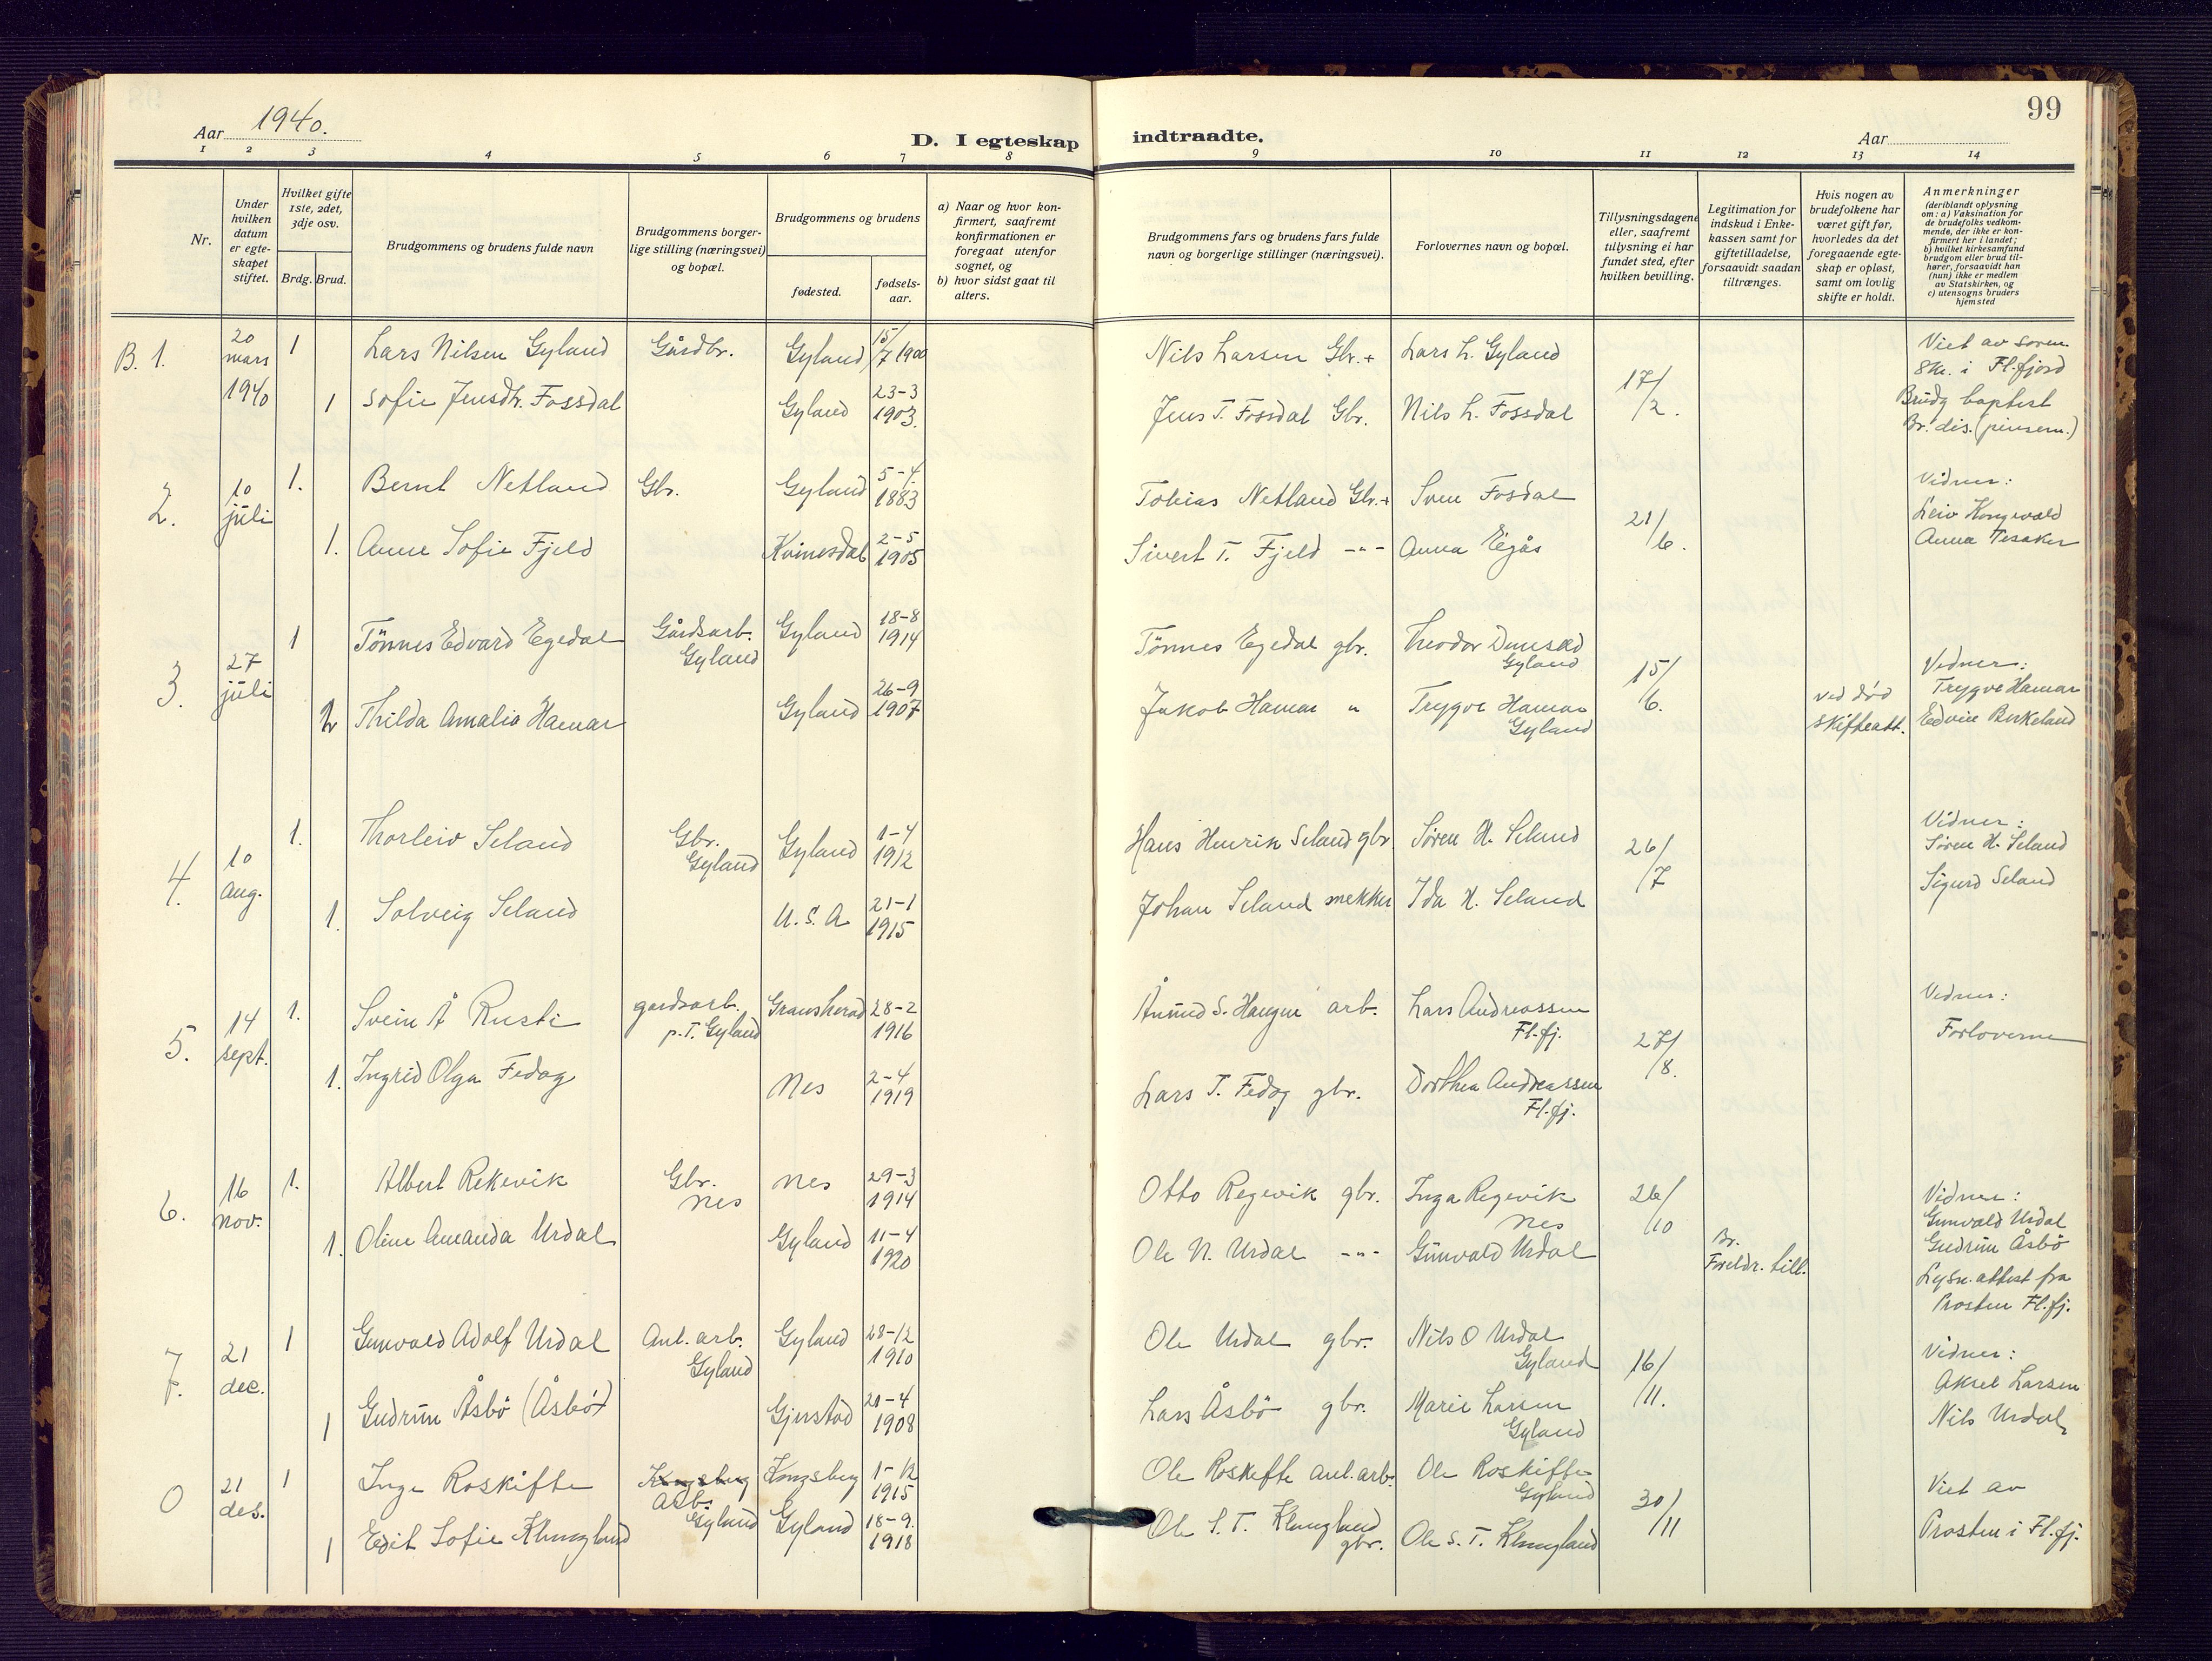 99
Aar 1940.
D. I egteskap indtraadte.
Aar
1 2 3 4 5 6 7 8 9 10 11 12 13 14
Nr.
Under
hvilken
datum
er egte-
skapet
stiftet.
Hvilket gifte
1ste, 2det,
3dje osv.
Brdg. Brud.
Brudgommens og brudens fulde navn
Brudgommens borger-
lige stilling (næringsvei)
og bopæl.
Brudgommens og brudens
fødested.
fødsels-
aar.
a) Naar og hvor kon-
firmert, saafremt
konfirmationen er
foregaat utenfor
sognet, og
b) hvor sidst gaat til
alters.
Brudgommens fars og brudens fars fulde
navn og borgerlige stillinger (næringsvei).
Forlovernes navn og bopæl.
Tillysningsdagene
eller, saafremt
tillysning ei har
fundet sted, efter
hvilken bevilling.
Legitimation for
indskud i Enke-
kassen samt for
giftetilladelse,
forsaavidt saadan
tiltrænges.
Hvis nogen av
brudefolkene har
været gift før,
hvorledes da det
foregaaende egte-
skap er opløst,
samt om lovlig
skifte er holdt.
Anmerkninger
(deriblandt oplysning
om: a) Vaksination for
de brudefolks vedkom-
mende, der ikke er kon-
firmert her i landet;
b) hvilket kirkesamfund
brudgom eller brud til-
hører, forsaavidt han
(hun) ikke er medlem
av Statskirken, og
c) utensogns bruders
hjemsted
B. 1.
20
mars
1940
1 Lars Nilsen Gyland Gårdbr. Gyland 15/7 1900
Nils Larsen Gbr. + Lars L. Gyland
1 Sofie Jensdtr. Fossdal Gyland 23-3 1903.
Jens T. Fossdal Gbr. Nils L. Fossdal
17/2.
Viet av soren-
skr. i Fl.fjord
Brudg baptist
Br. dis. (pinsem.)
2.
10
juli
1. Bernt Netland Gbr. Gyland 5-4. 1883
Tobias Netland Gbr. + Sven Fosdal
1. Anne Sofie Fjeld Kvinesdal 2-5 1905
Sivert T. Fjeld -"- Anna Eigås
21/6.
Vidner:
Leiv Kongevold
Anna Tesaker
3.
27
juli
1 Tönnes Edvard Egedal Gårdsarb. Gyland Gyland 18-8 1914
Tönnes Egedal gbr. Theodor Dunsæd Gyland
2 Thilda Amalia Hamar Gyland 26-9 1907
Jakob Hamar " Trygve Hamar Gyland
15/6.
ved død
skifteatt.
Vidner:
Trygve Hamar
Edvin Birkeland
4.
10
aug.
1. Thorleiv Seland Gbr. Gyland Gyland 1-4 1912
Hans Henrik Seland gbr. Søren H. Seland
1. Solveig Seland U.S.A 21-1 1915
Johan Seland snekker Ida H. Seland
26/7
Vidner:
Søren H. Seland
Sigurd Seland
5.
14
sept.
1. Svein Å Rusti gardsarb. p.T. Gyland Gransherad 28-2 1916
Ånund S. Haugen arb. Lars Andreassen Fl.fj.
1. Ingrid Olga Fedog Nes 2-4 1919
Lars T. Fedog gbr. Dorthea Andreassen Fl.fj.
27/8.
Vidner:
Forloverne
6.
16
nov.
1. Albert Rekevik Gbr. Nes Nes 29-3 1914
Otto Regevik gbr. Inga Regevik Nes
1. Oline Amanda Urdal Gyland 11-4 1920
Ole N. Urdal -"- Gunvald Urdal
26/10
Br.
Foreldr. till.
Vidner:
Gunvald Urdal
Gudrun Åsbö
Lysn. attest fra
Prosten Fl.fj.
7.
21
dec.
1 Gunvald Adolf Urdal Anl. arb. Gyland Gyland 28-12 1910
Ole Urdal gbr. Nils O Urdal Gyland
1 Gudrun Åsbö (Åsbø) Gjerstad 20-4 1908
Lars Åsbö gbr. Marie Larsen Gyland
16/11.
Vidner:
Aksel Larsen
Nils Urdal
0
21
des.
1 Inge Roskifte Kongsberg Arb. Gyland Kongsberg 1-12 1915
Ole Roskifte anl. arb. Ole Roskifte Gyland
1 Edit Sofie Klungland Gyland 18-9. 1918
Ole S. T. Klungland gbr. Ole S. T. Klungland
30/11
Viet av
Prosten i Fl.fj.